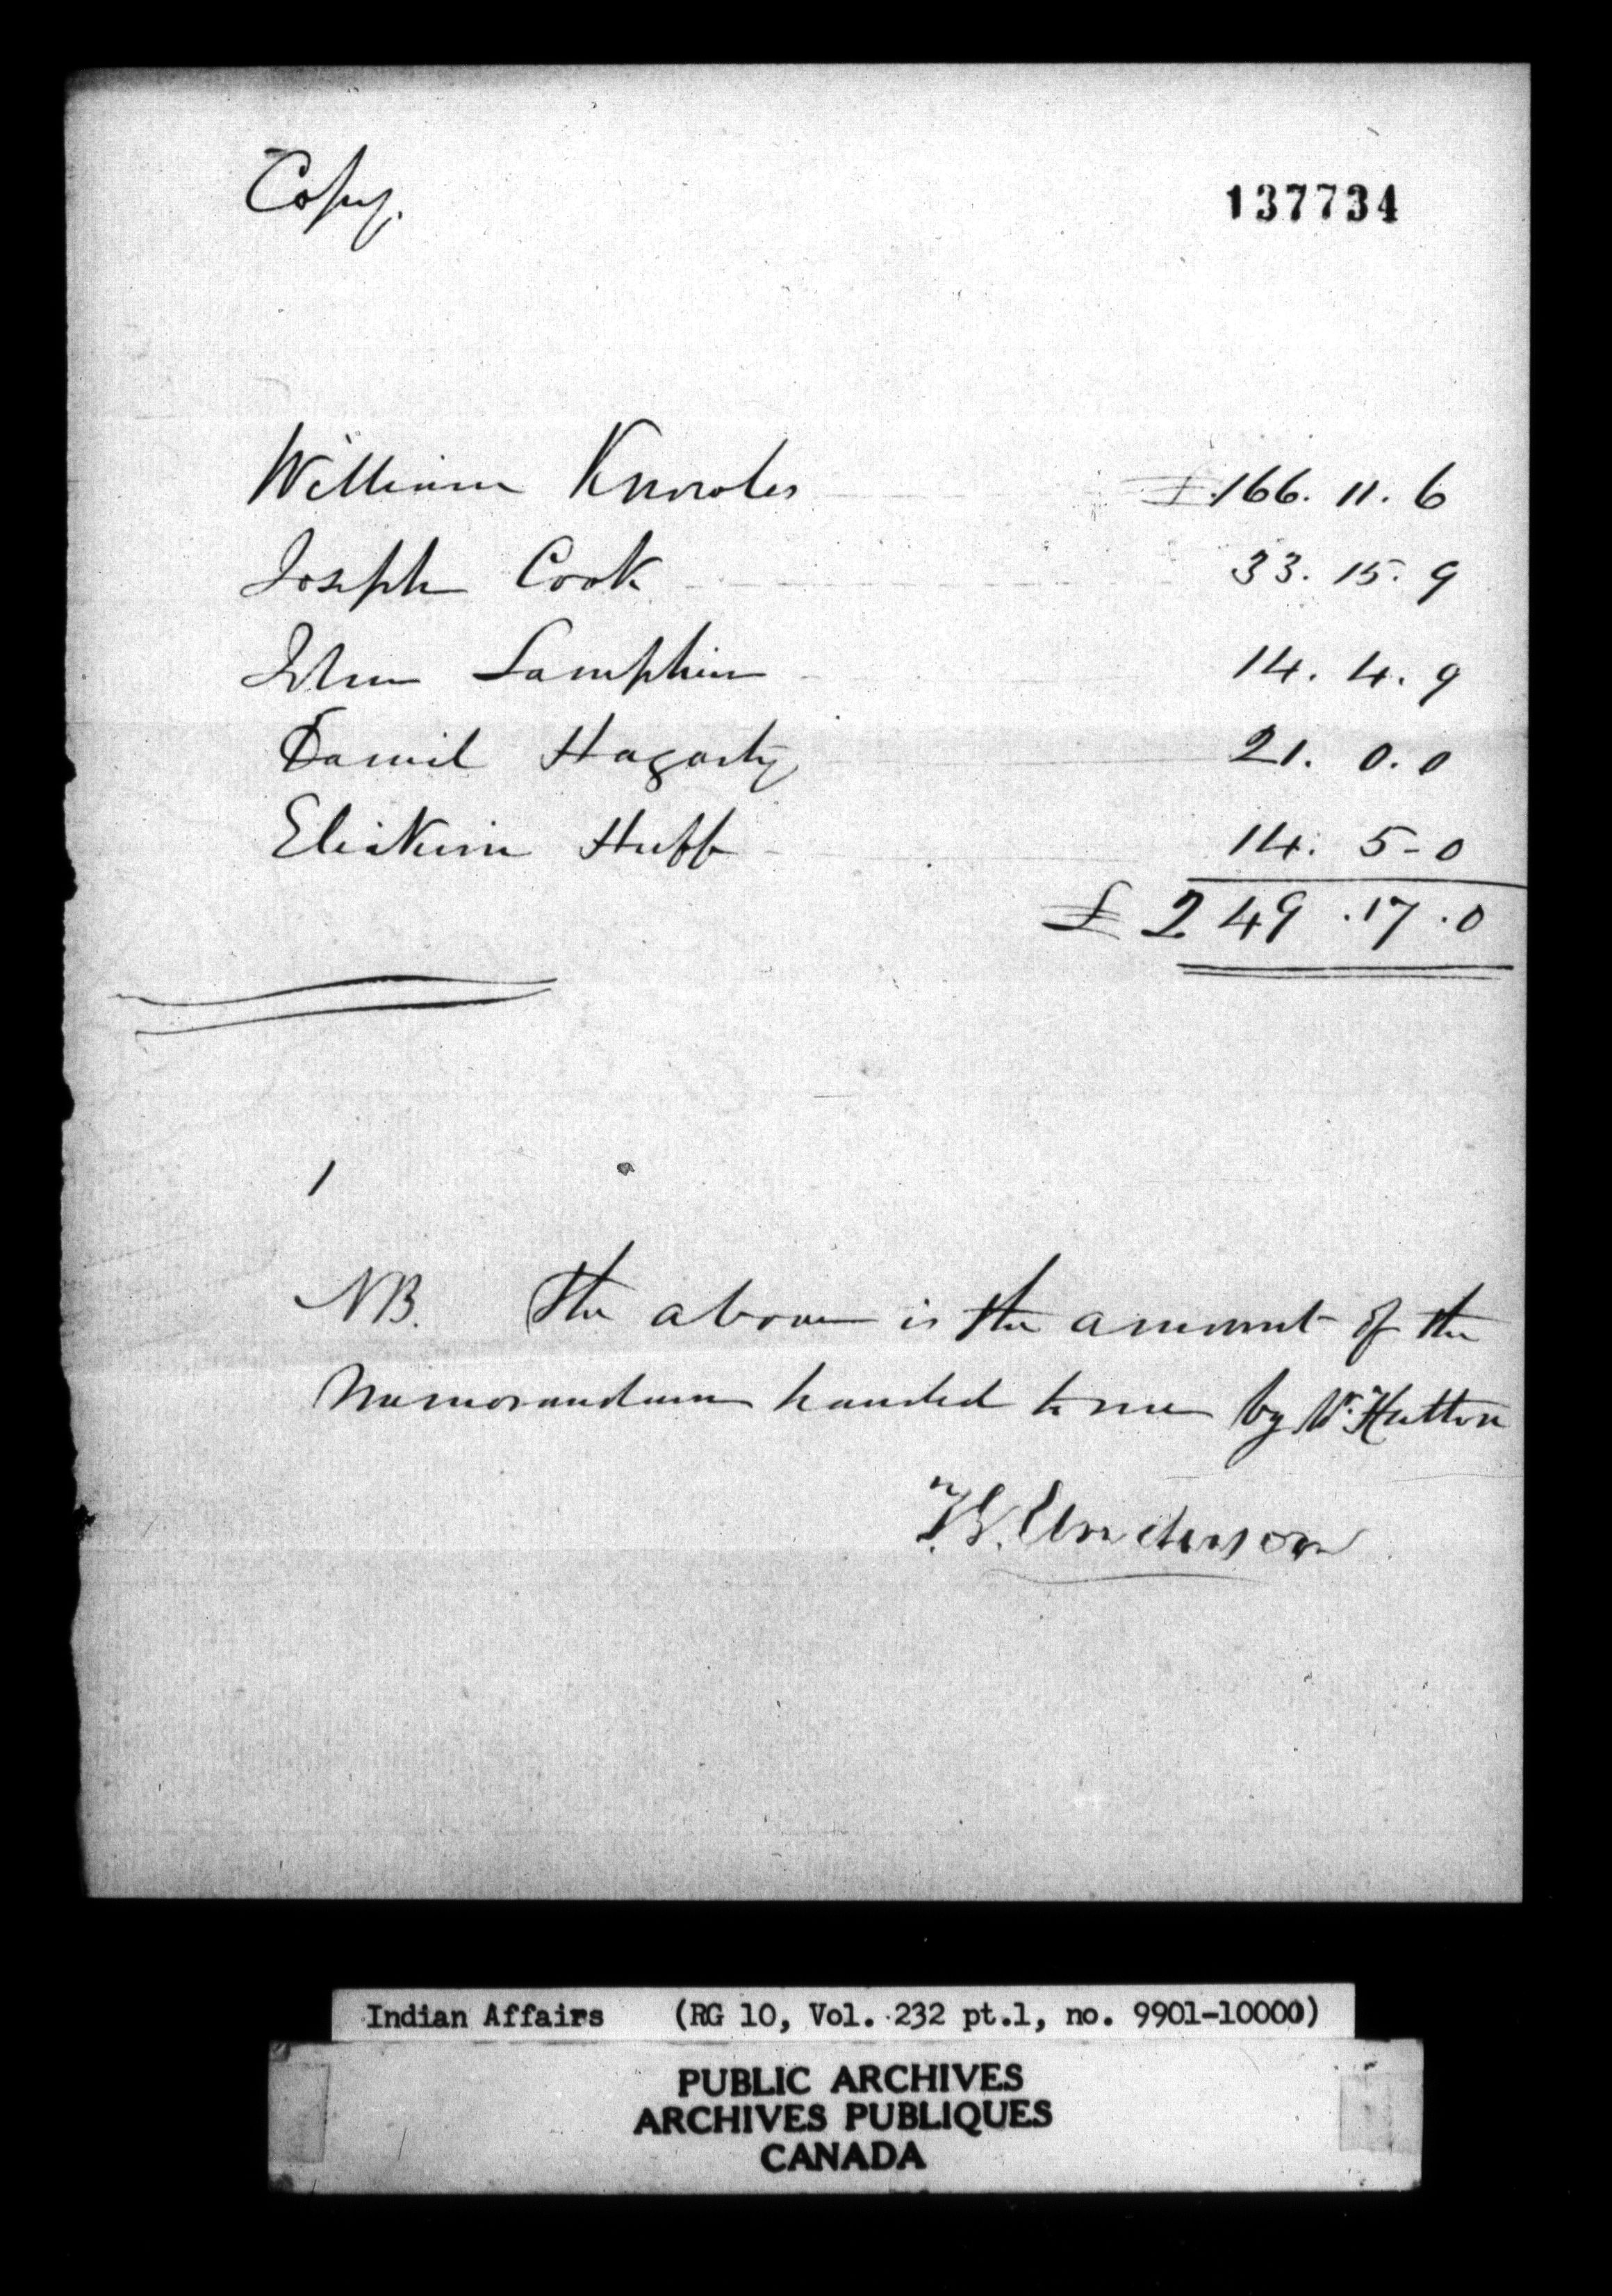 Copy.
137734
William Knowles £166. 11. 6
Joseph Cook 33. 15. 9
John Lamphier 14. 4. 9
Daniel Hagarty 21. 0. 0
Eliakim Huff 14. 5-0
£ 249 .17 .0
NB. The above is the amount of the
Memorandum handed to me by Mr. Hutton
T.G. Anderson
Indian Affairs (RG 10, Vol. 232 pt.1, no. 9901-10000)
PUBLIC ARCHIVES
ARCHIVES PUBLIQUES
CANADA